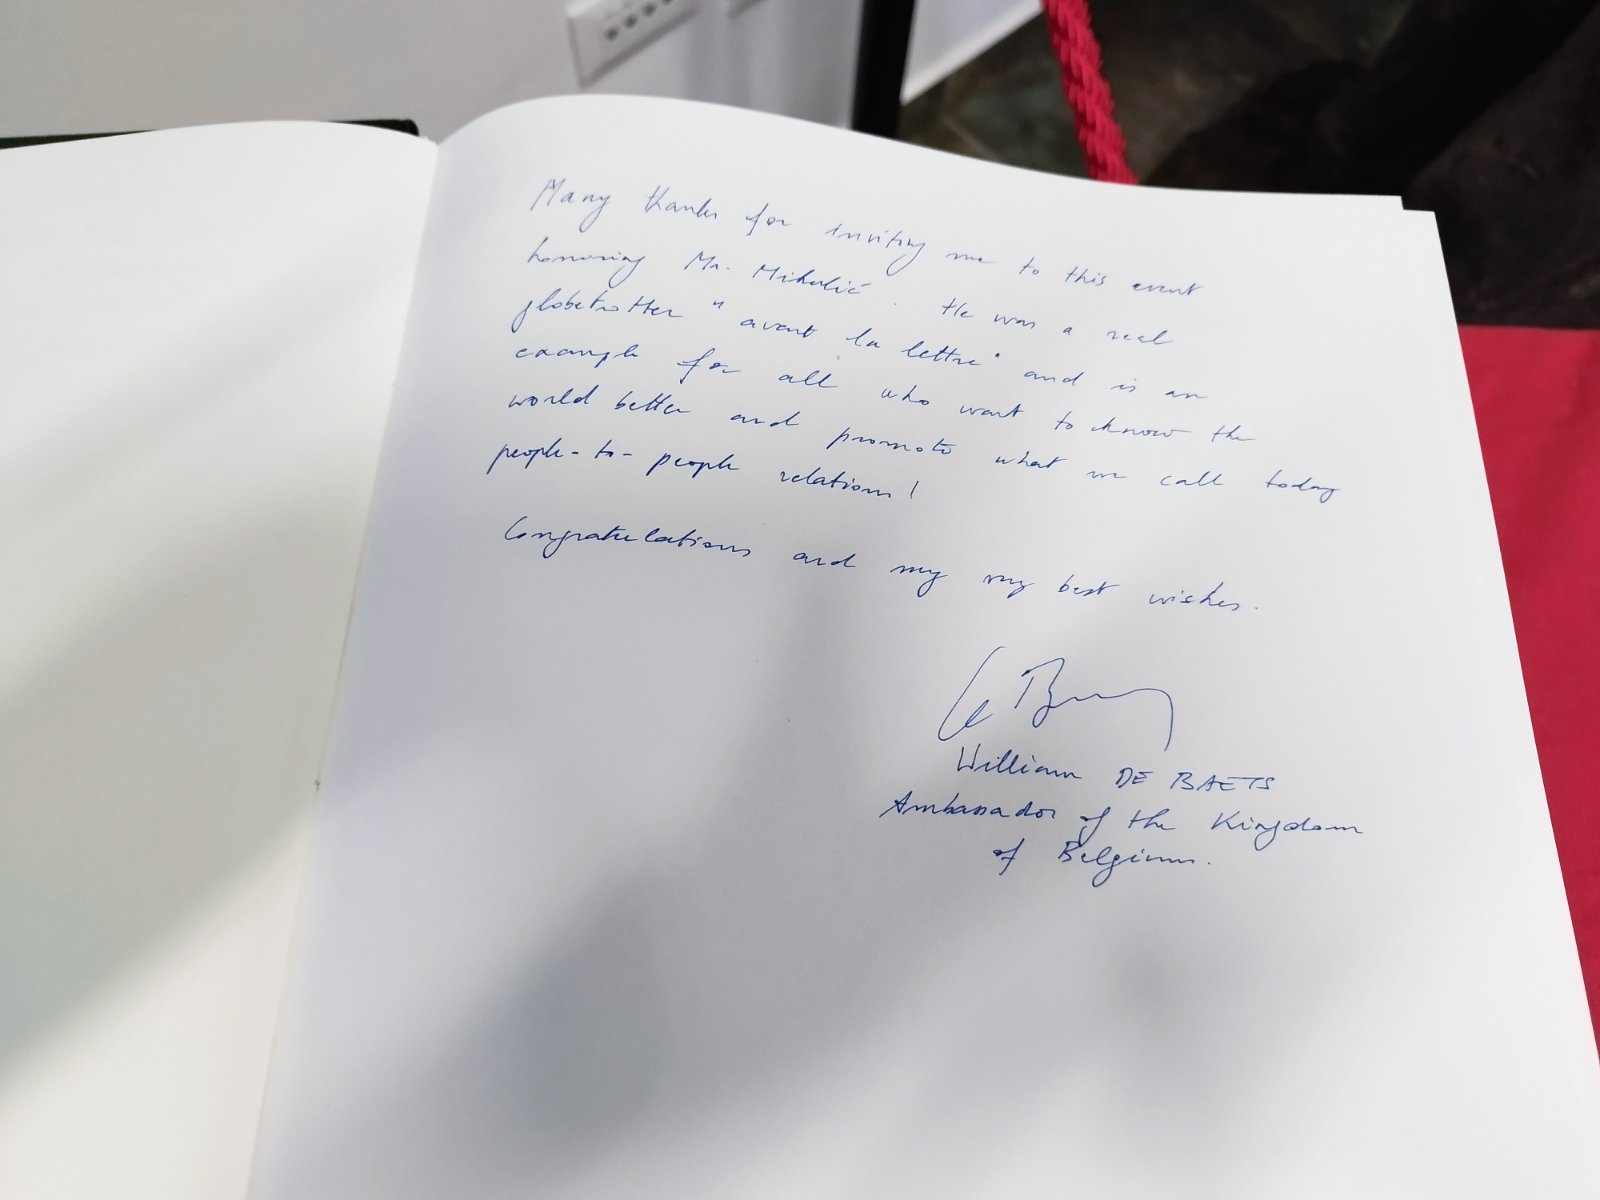 Many thanks for inviting me to this event
honouring Mr. Mikulić. He was a real
globetrotter "avant la lettre" and is an
example for all who want to know the
world better and promote what we call today
people-to-people relations!
Congratulations and my my best wishes.
William DE BAETS
Ambassador of the Kingdom
of Belgium.